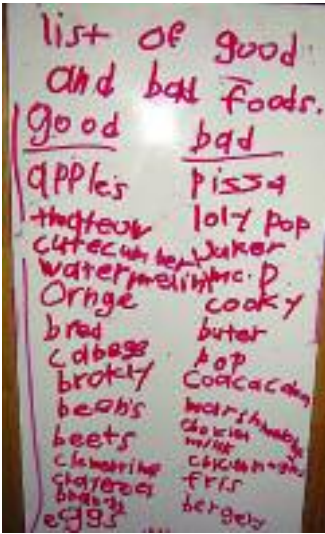 list of good
and bad foods.
good bad
apples pissa
loly pop
cutecumber
watermelin mc.D.
Ornge cooky
bred buter
cabege pop
brokly coacacola
beans
beets chocolet milk
clementine
fris
eggs bergers